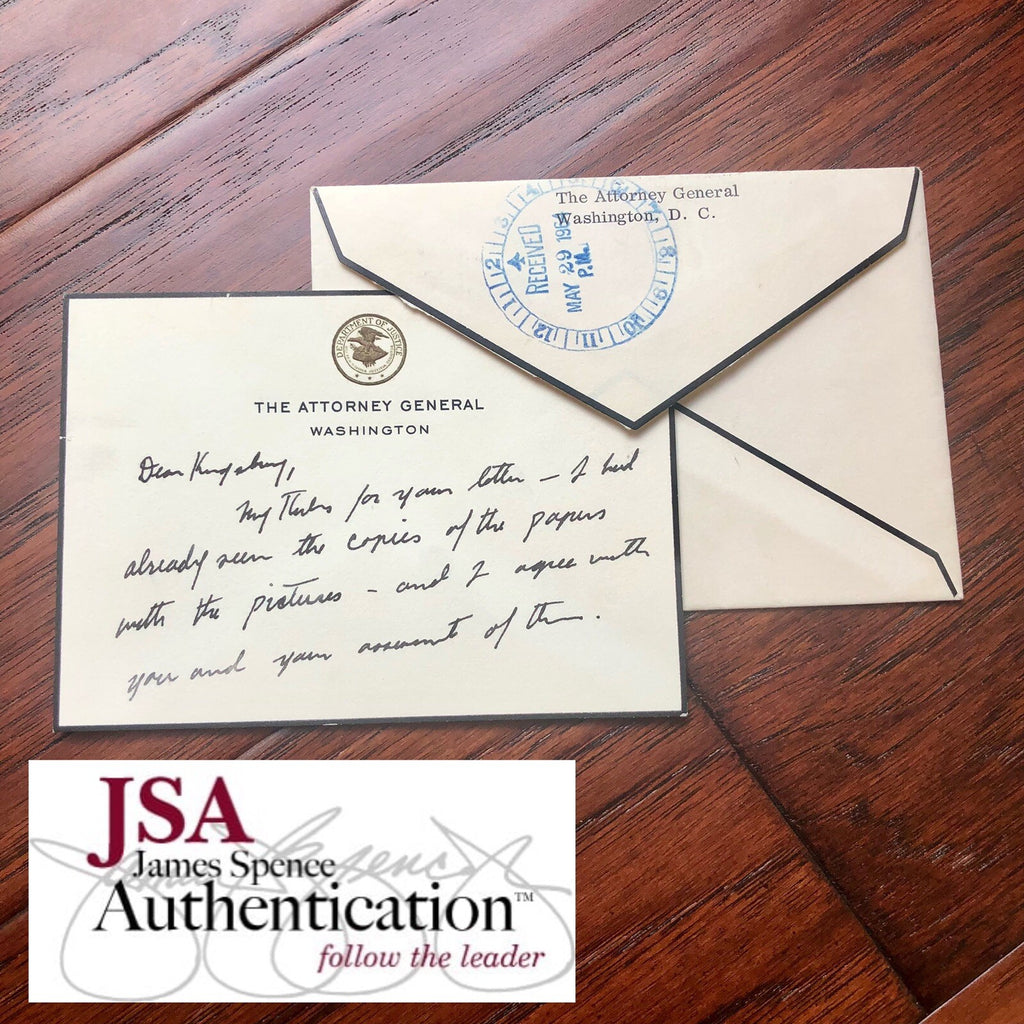 The Attorney General
Washington, D. C.
RECEIVED
MAY 29 196
P.M.
2 3 4 7 8 9 10 11 12 1
DEPARTMENT OF JUSTICE
THE ATTORNEY GENERAL
WASHINGTON
Dear Kingsbury,
My thanks for your letter — I had
already seen the copies of the papers
with the pictures — and I agree with
you and your of them.
JSA
James Spence
Authentication™
follow the leader